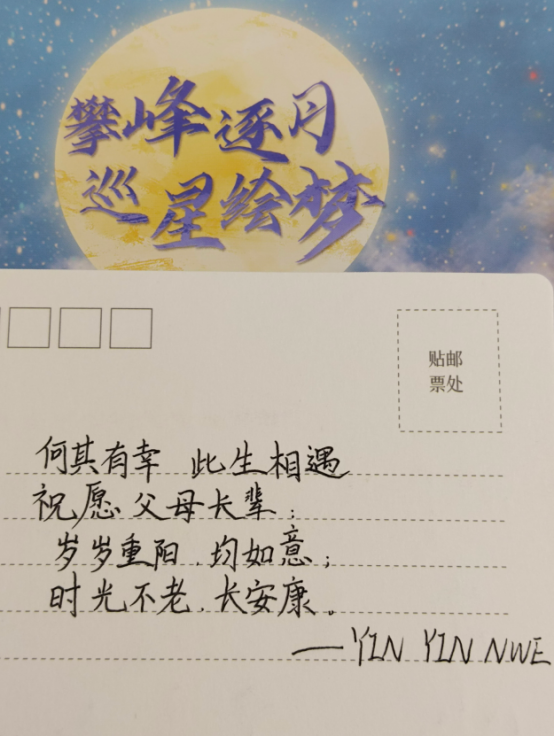 攀峰逐月
巡星绘梦
贴邮
票处
何其有幸 此生相遇
祝愿父母长辈:
岁岁重阳,均如意;
时光不老,长安康。
——YIN YIN NWE